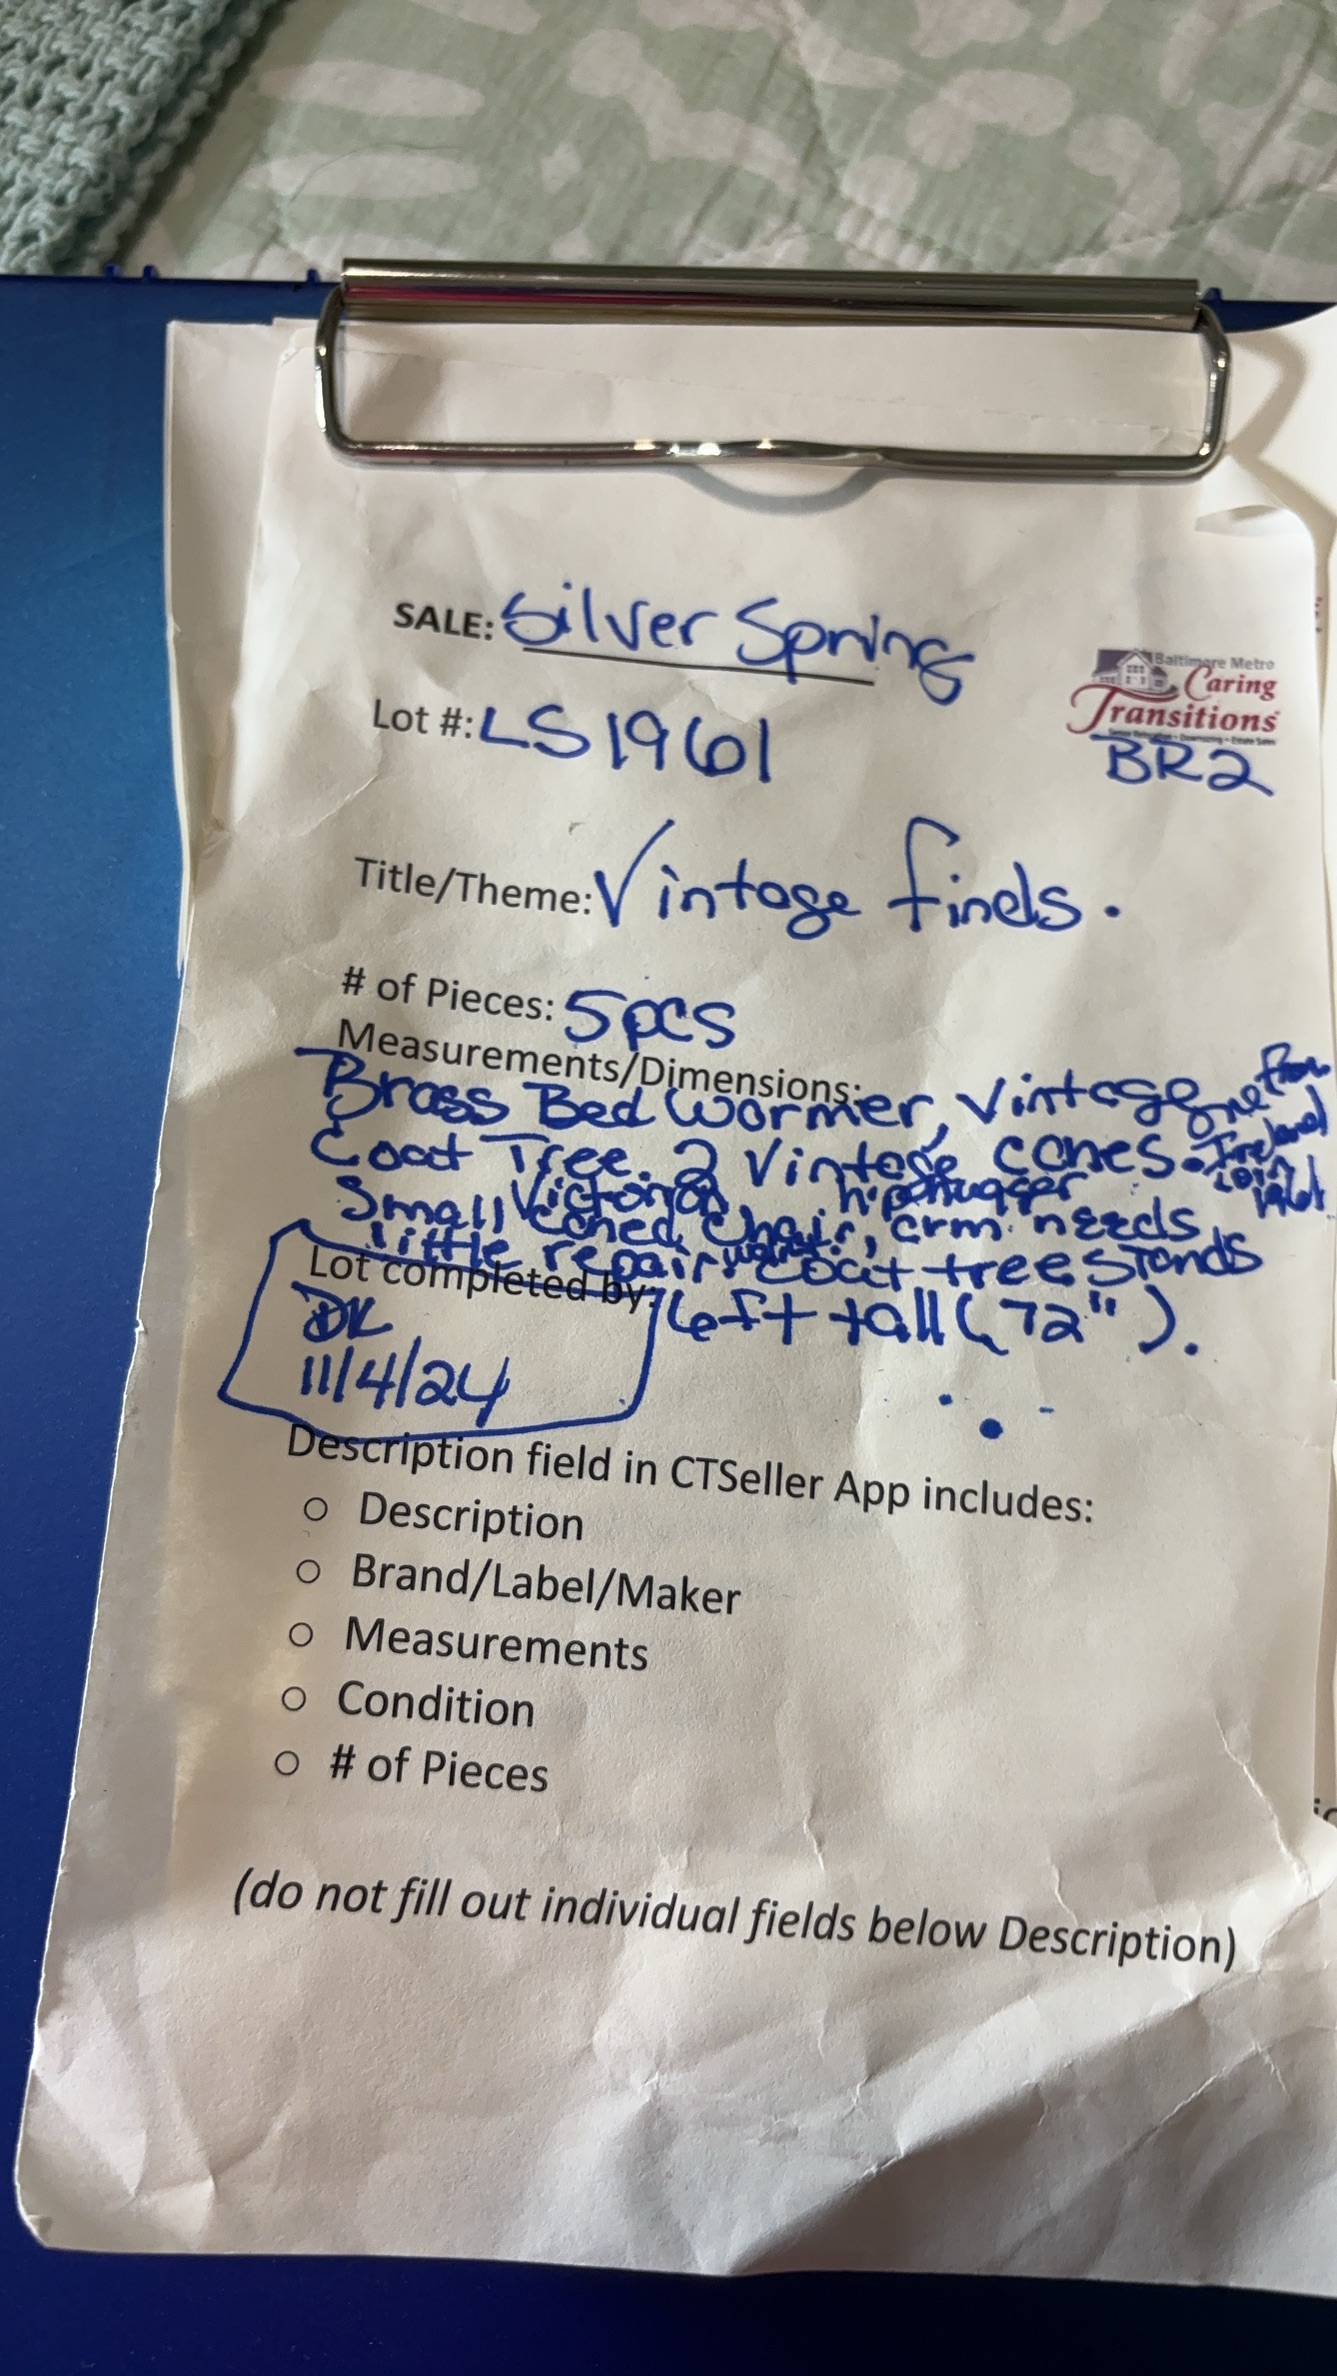 SALE: Silver Spring
Baltimore Metro
Caring
Transitions
Lot #: LS1961
BR2
Title/Theme: Vintage finds.
# of Pieces: 5pcs
Measurements/Dimensions:
Brass Bed Warmer, Vintage
Coat Tree. 2 Vintage canes. one from Ireland
Small Victorian hiphugger
caned chair, arm needs
little repair. coat tree stands
6ft tall (72").
Lot completed by:
DK
11/4/24
Description field in CTSeller App includes:
○ Description
○ Brand/Label/Maker
○ Measurements
○ Condition
○ # of Pieces
(do not fill out individual fields below Description)